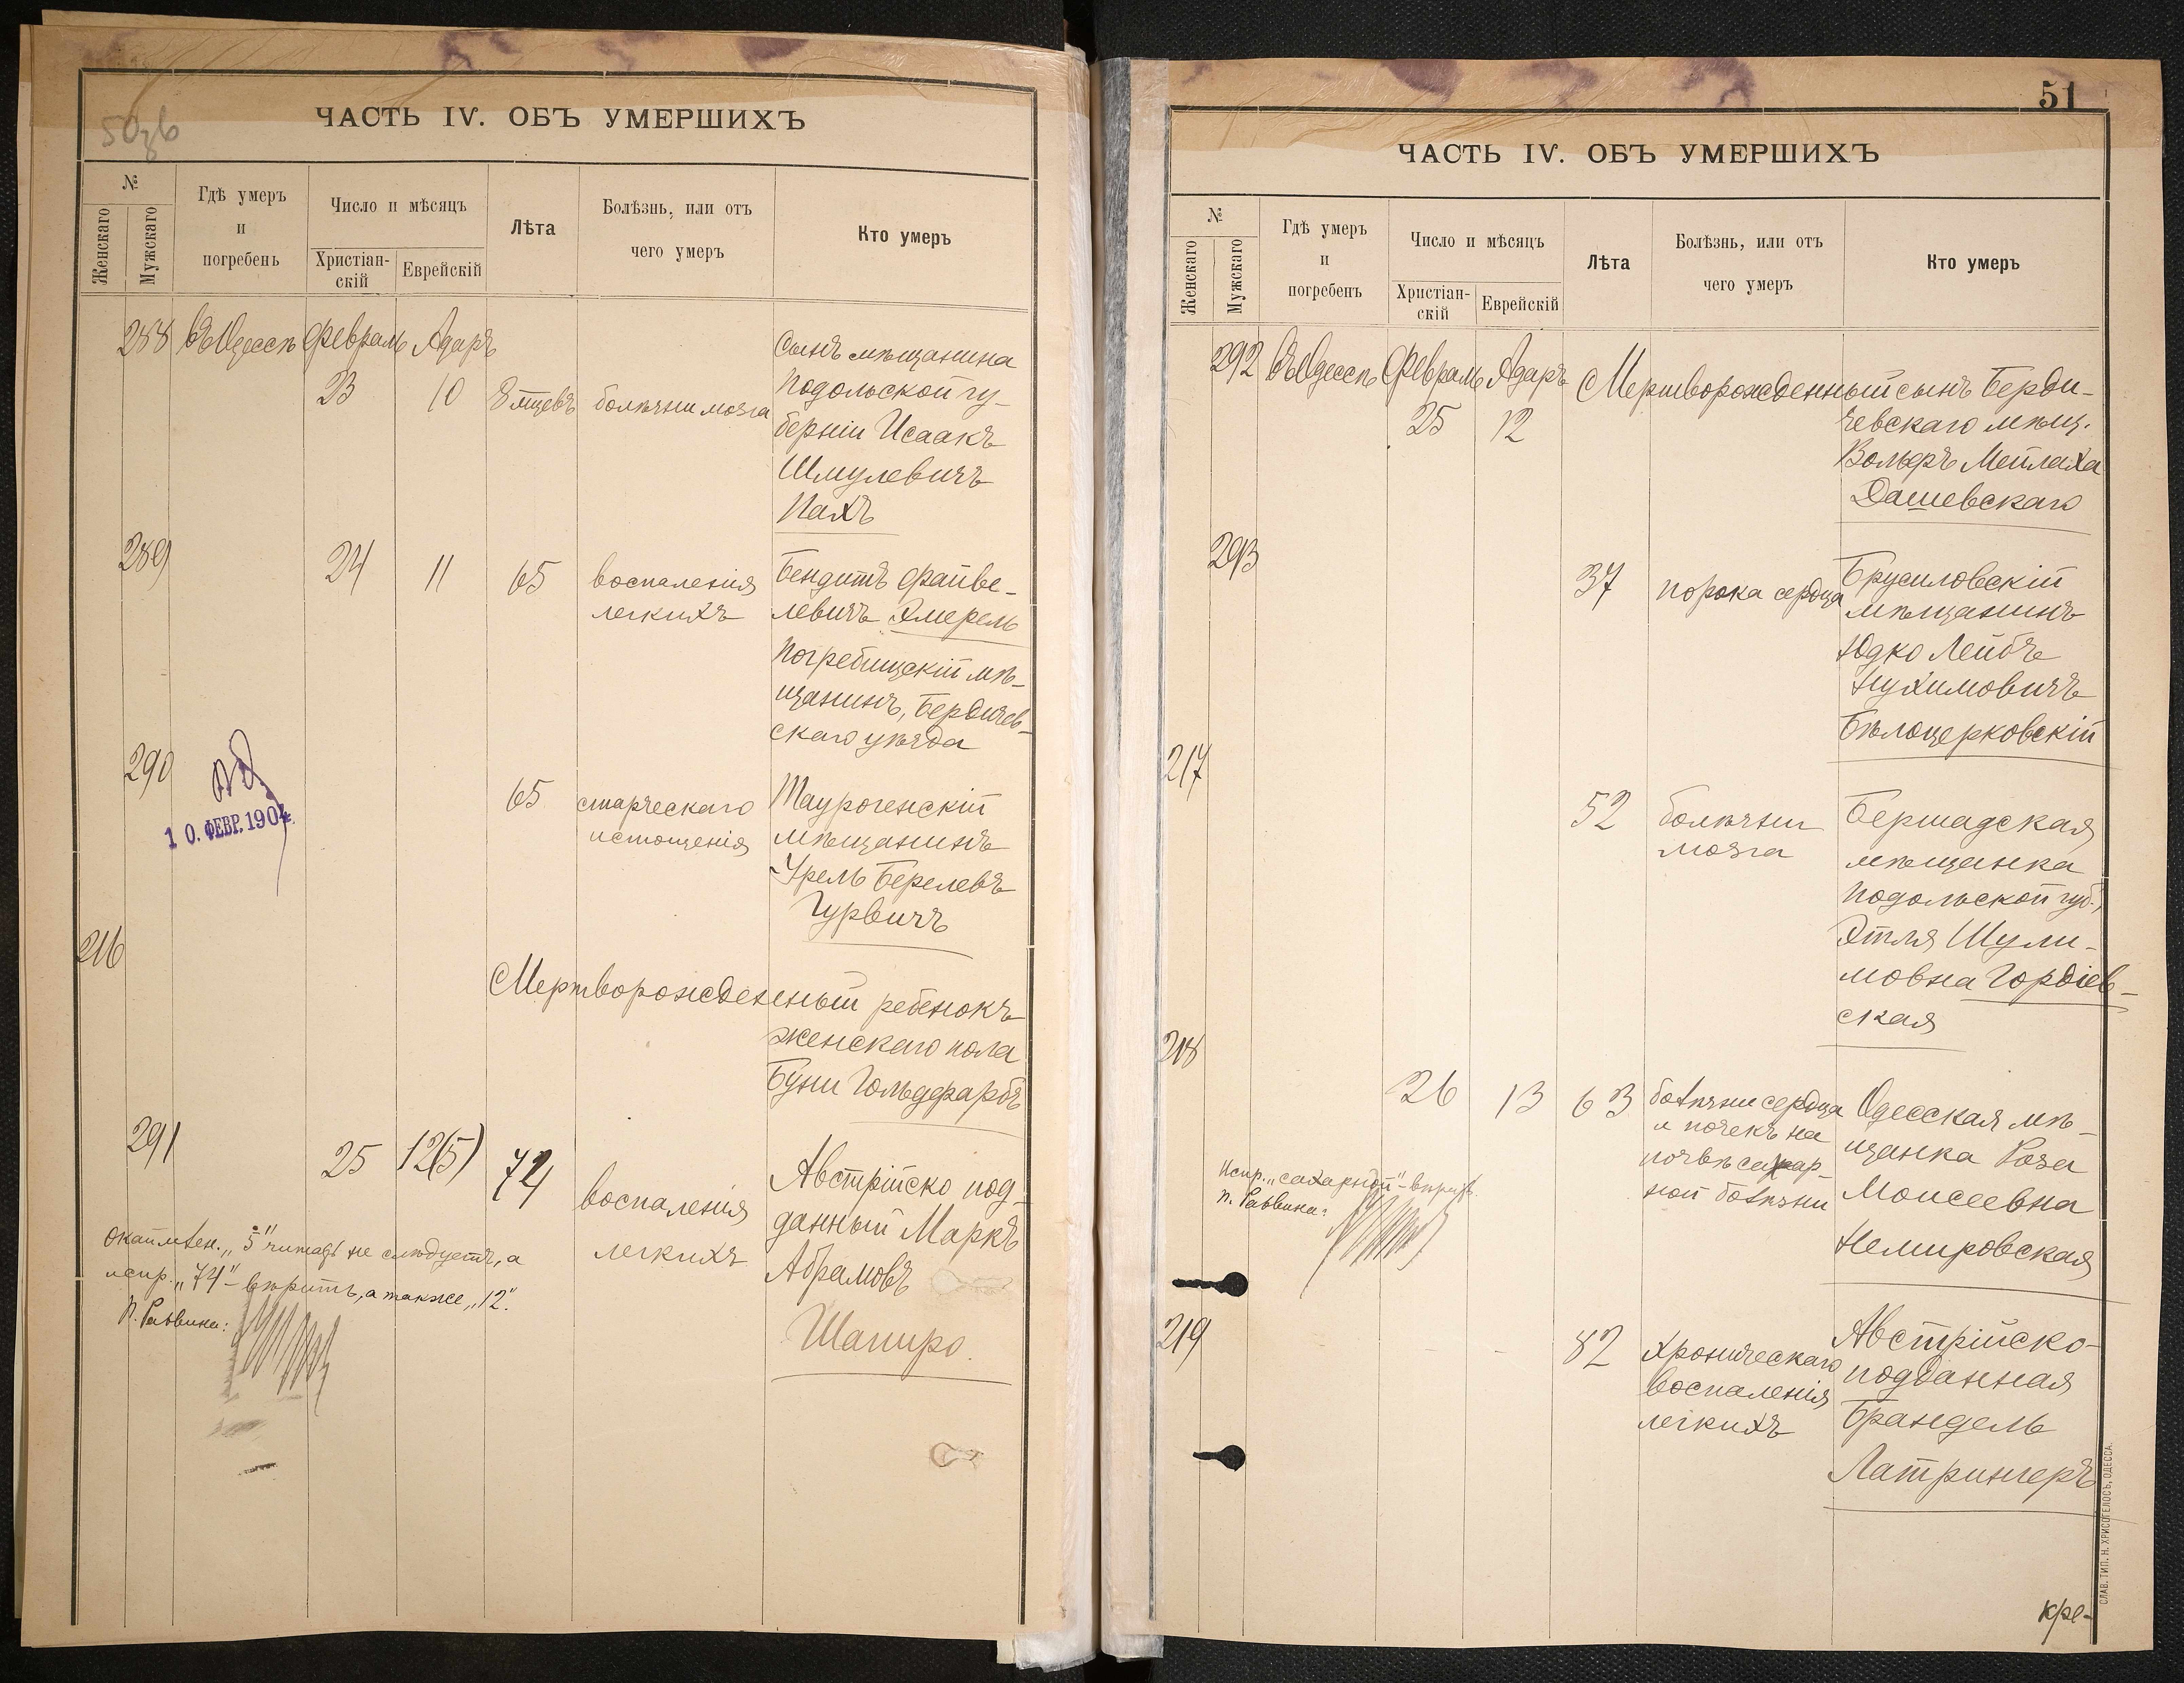 50зв
ЧАСТЬ IV. ОБЪ УМЕРШИХЪ
№
Женскаго
Мужскаго
Гдѣ умеръ
и
погребенъ
Число и мѣсяцъ
Христіан-
скій
Еврейскій
Лѣта
Болѣзнь, или отъ
чего умеръ
Кто умеръ
288 въ Одессѣ Февраль Адаръ
23 10 8 мцевъ болѣзни мозга
Сынъ мѣщанина
Подольской гу-
берніи Исаакъ
Шмулевичъ
Пахъ
289 24 11 65 воспаленія
легкихъ
Бендитъ Файве-
левичъ Эмерель
Погребищскій мѣ-
щанинъ, Бердичев-
скаго уѣзда
290
10. ФЕВР. 1904
65 старческаго
истощенія
Таурогенскій
мѣщанинъ
Урель Берелевъ
Гурвичъ
216
Мертворожденный ребенокъ
женскаго пола
Буни Гольдфарбъ
291 25 12(5) 74 воспаленія
легкихъ
Австрійско под-
данный Маркъ
Абрамовъ
Шапиро.
окаймлен. „5" читать не слѣдуетъ, а
испр. „74"- вѣрить, а также „12".
П. Раввина:
51
ЧАСТЬ IV. ОБЪ УМЕРШИХЪ
№
Женскаго
Мужскаго
Гдѣ умеръ
и
погребенъ
Число и мѣсяцъ
Христіан-
скій
Еврейскій
Лѣта
Болѣзнь, или отъ
чего умеръ
Кто умеръ
292 въ Одессѣ Февраль Адаръ Мертворожденный сынъ Берди-
25 12 чевскаго мѣщ.
Вольфъ Мейлаха
Дашевскаго
293
37 порока сердца
Брусиловскій
мѣщанинъ
Юдко Лейбъ
Нухимовичъ
Бѣлоцерковскій
217
52 болѣзни
мозга
Бершадская
мѣщанка
Подольской губ.,
Этля Шули-
мовна Гордіев-
ская
218
26 13 63 болѣзни сердца
и почекъ на
почвѣ сахар-
ной болѣзни
Одесская мѣ-
щанка Роза
Моисеевна
Немировская
Испр. „сахарной"- вѣрить.
П. Раввина:
219 - - 82 хроническаго
воспаленія
легкихъ
Австрійско-
подданная
Брандель
Латрингеръ
кре-
СЛАВ. ТИП. Н. ХРИСОГЕЛОСЪ, ОДЕССА.